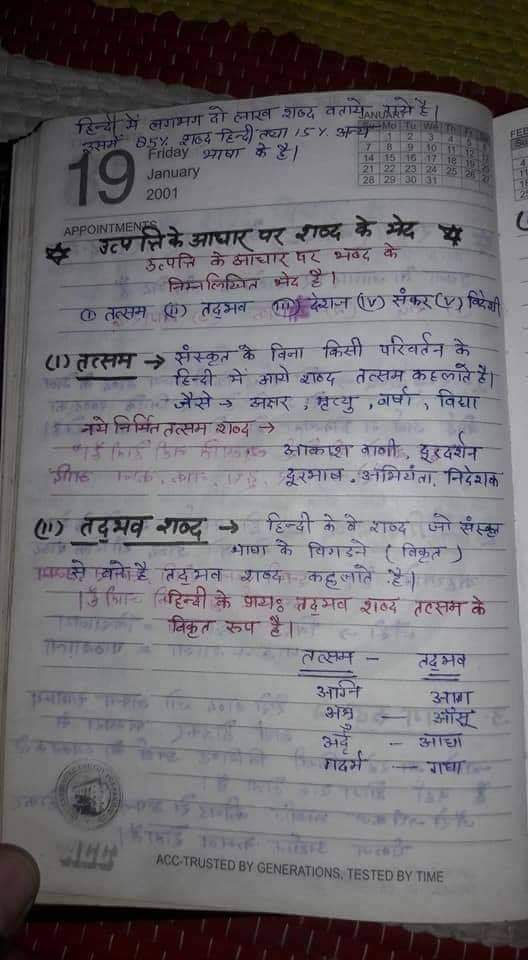 हिन्दी में लगभग दो लाख शब्द बताये गये है।
उसमें 85% शब्द हिन्दी तथा 15% अन्य
भाषा के है।
JANUARY
Mo Tu We Th Fr
1 2 3 4 5
7 8 9 10 11 12
14 15 16 17 18 19
21 22 23 24 25 26
28 29 30 31
19
Friday
January
2001
APPOINTMENTS
उत्पत्ति के आधार पर शब्द के भेद
उत्पत्ति के आधार पर शब्द के
निम्नलिखित भेद है।
(i) तत्सम (ii) तद्भव (iii) देशज (iv) संकर (v) विदेशी
(i) तत्सम → संस्कृत के बिना किसी परिवर्तन के
हिन्दी में आये शब्द तत्सम कहलाते है।
जैसे → अक्षर, मृत्यु, वर्षा, विद्या
नये निर्मित तत्सम शब्द →
आकाश वाणी, दूरदर्शन
दूरभाष, अभियंता, निदेशक
(ii) तद्भव शब्द → हिन्दी के वे शब्द जो संस्कृत
भाषा के बिगडने (विकृत)
से बने है तद्भव शब्द कहलाते है।
हिन्दी के प्रायः तद्भव शब्द तत्सम के
विकृत रूप है।
तत्सम – तद्भव
अग्नि आग
अश्रु — आँसू
अर्द्ध - आधा
गदर्भ — गधा
ACC-TRUSTED BY GENERATIONS, TESTED BY TIME